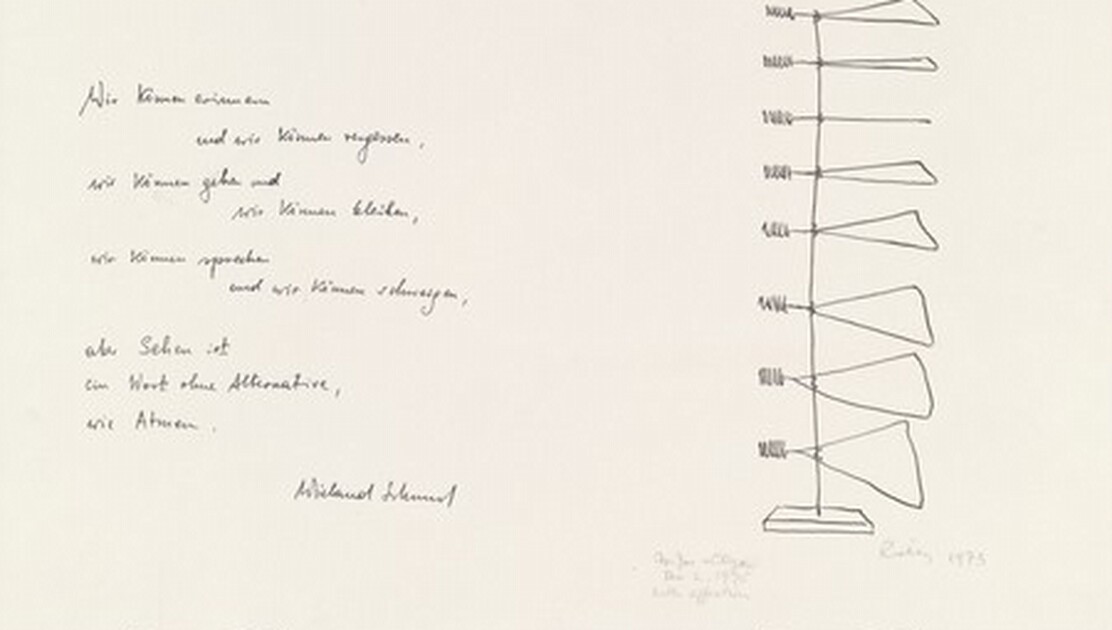 Wir können erinnern
und wir können vergessen,
wir können gehen und
wir können bleiben,
wir können sprechen
und wir können schweigen,
aber Sehen ist
ein Wort ohne Alternative,
wie Atmen.
Wieland Schmied
Rickey 1973
with affection